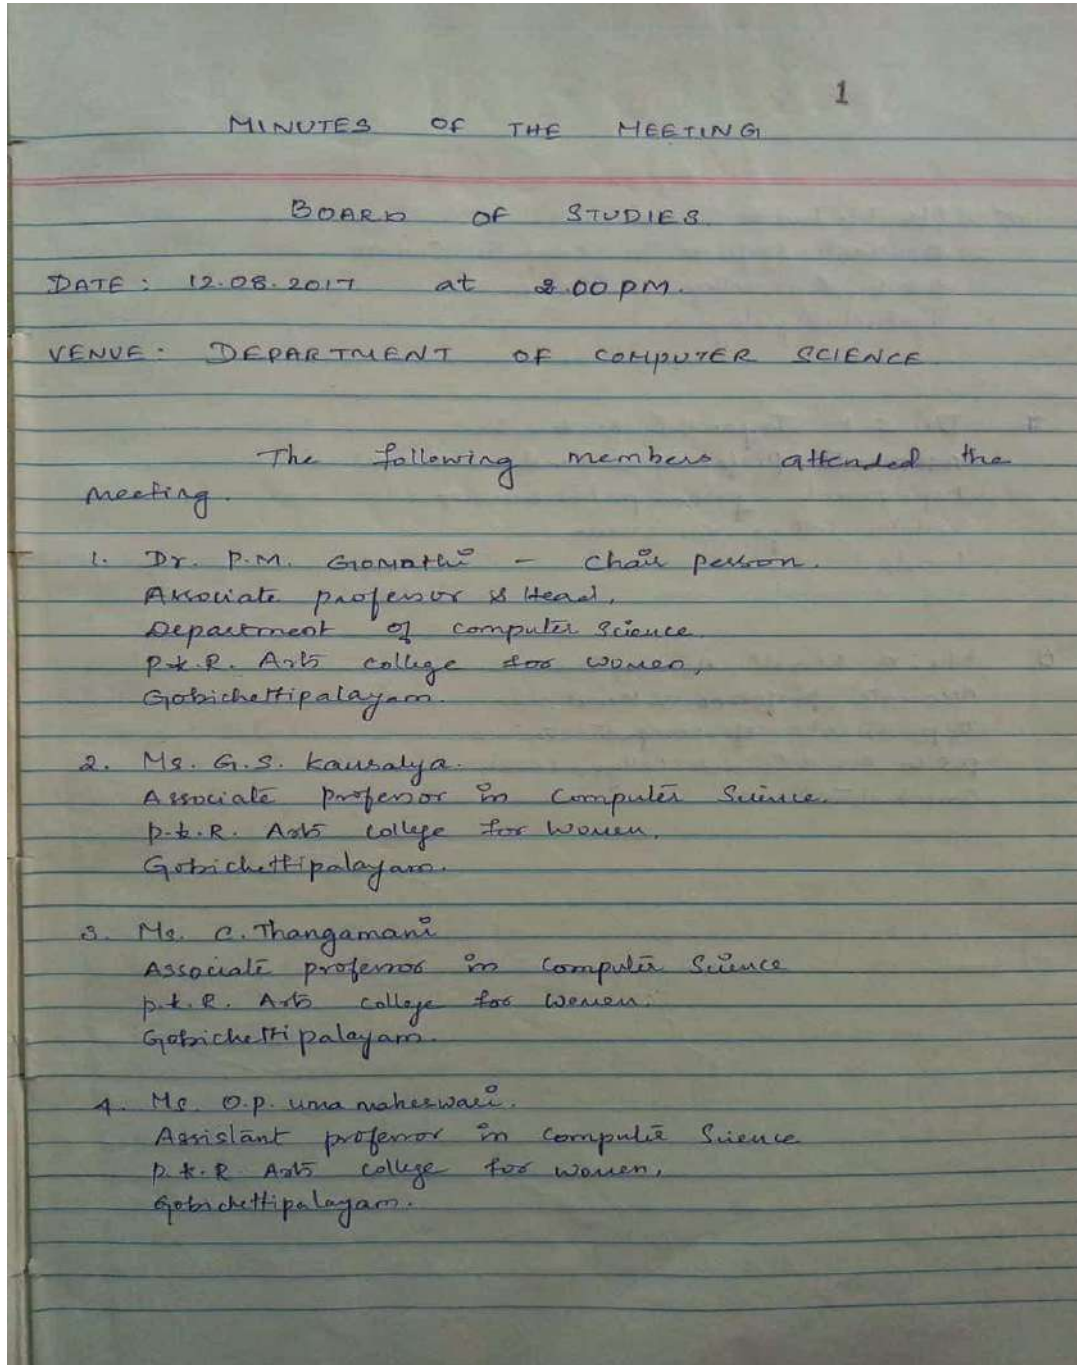 1
MINUTES OF THE MEETING
BOARD OF STUDIES
DATE: 12.08.2017 at 2.00 PM.
VENUE: DEPARTMENT OF COMPUTER SCIENCE
The following members attended the
meeting.
1. Dr. P.M. Gomathi - Chair person.
Associate professor & Head,
Department of computer Science
P.K.R. Arts college for women,
Gobichettipalayam.
2. Ms. G.S. Kausalya.
Associate professor in Computer Science.
P.K.R. Arts college for Women,
Gobichettipalayam.
3. Ms. C. Thangamani
Associate professor in Computer Science
P.K.R. Arts college for Women.
Gobichettipalayam.
4. Ms. O.P. Uma maheswari.
Assistant professor in Computer Science
P.K.R Arts college for women,
Gobichettipalayam.